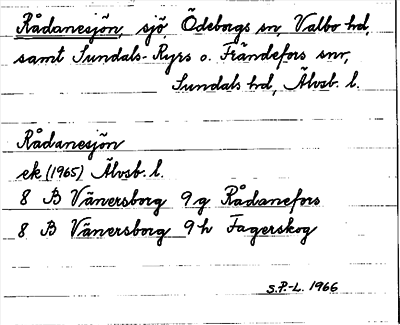 Rådanesjön, sjö, Ödeborgs sn, Valbo hd,
samt Sundals-Ryrs o. Frändefors snr,
Sundals hd, Älvsb. l.
Rådanesjön
ek (1965) Älvsb. l.
8 B Vänersborg 9g Rådanefors
8 B Vänersborg 9h Fagerskog
S.P-L. 1966